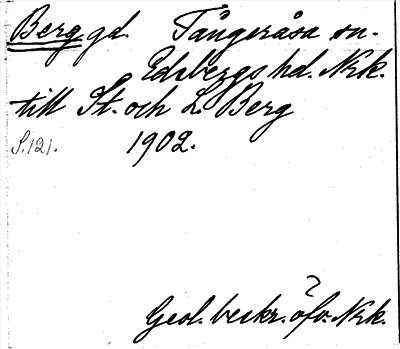 Berg gd. Tångeråsa sn.
Edsbergs hd. Nrk.
till St. och L. Berg
S. 121. 1902.
?
Geol. beskr. öfv. Nrk.